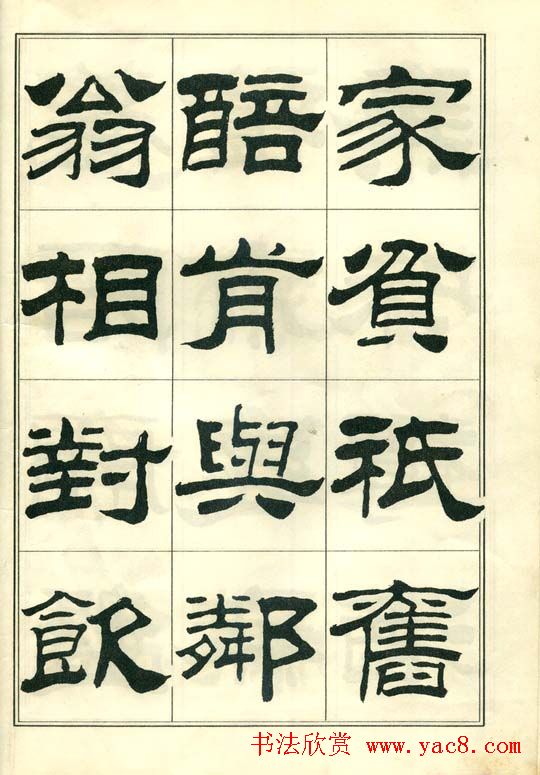 家貧祇舊
醅肯與鄰
翁相對飲
书法欣赏 www.yac8.com